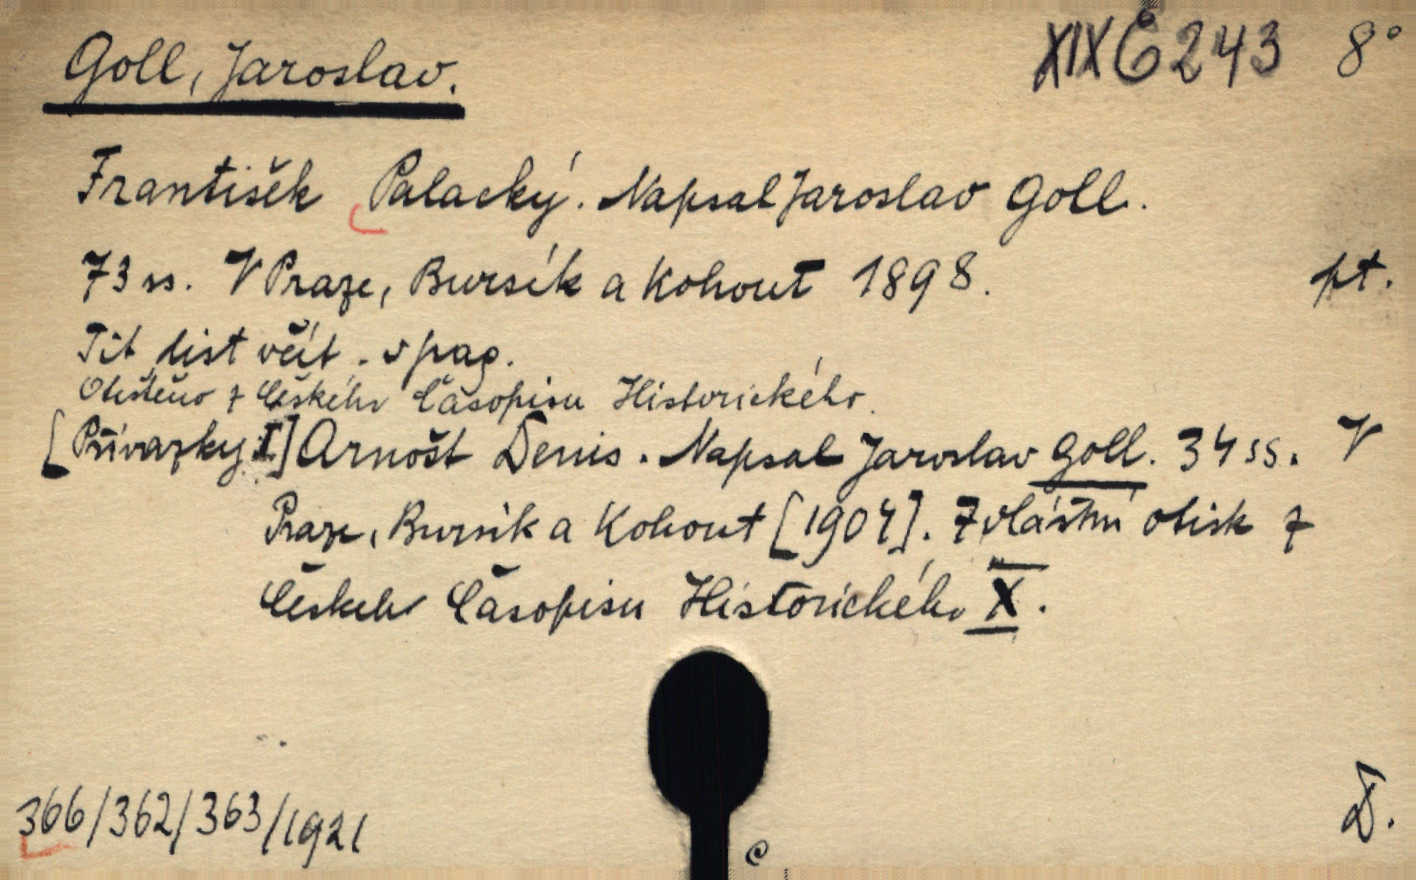 Goll, Jaroslav.
XIX E 243 8°
František Palacký. Napsal Jaroslav Goll.
73 ss. V Praze, Bursík a Kohout 1898. pt.
Tit. list včít. v pag.
Otištěno z Českého Časopisu Historického.
[Přívazky I] Arnošt Denis. Napsal Jaroslav Goll. 34 ss. V
Praze, Bursík a Kohout [1904]. Zvláštní otisk z
Českého Časopisu Historického X.
366/362/363/1921
D.